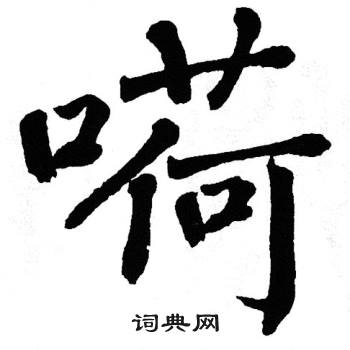 嗬
词典网